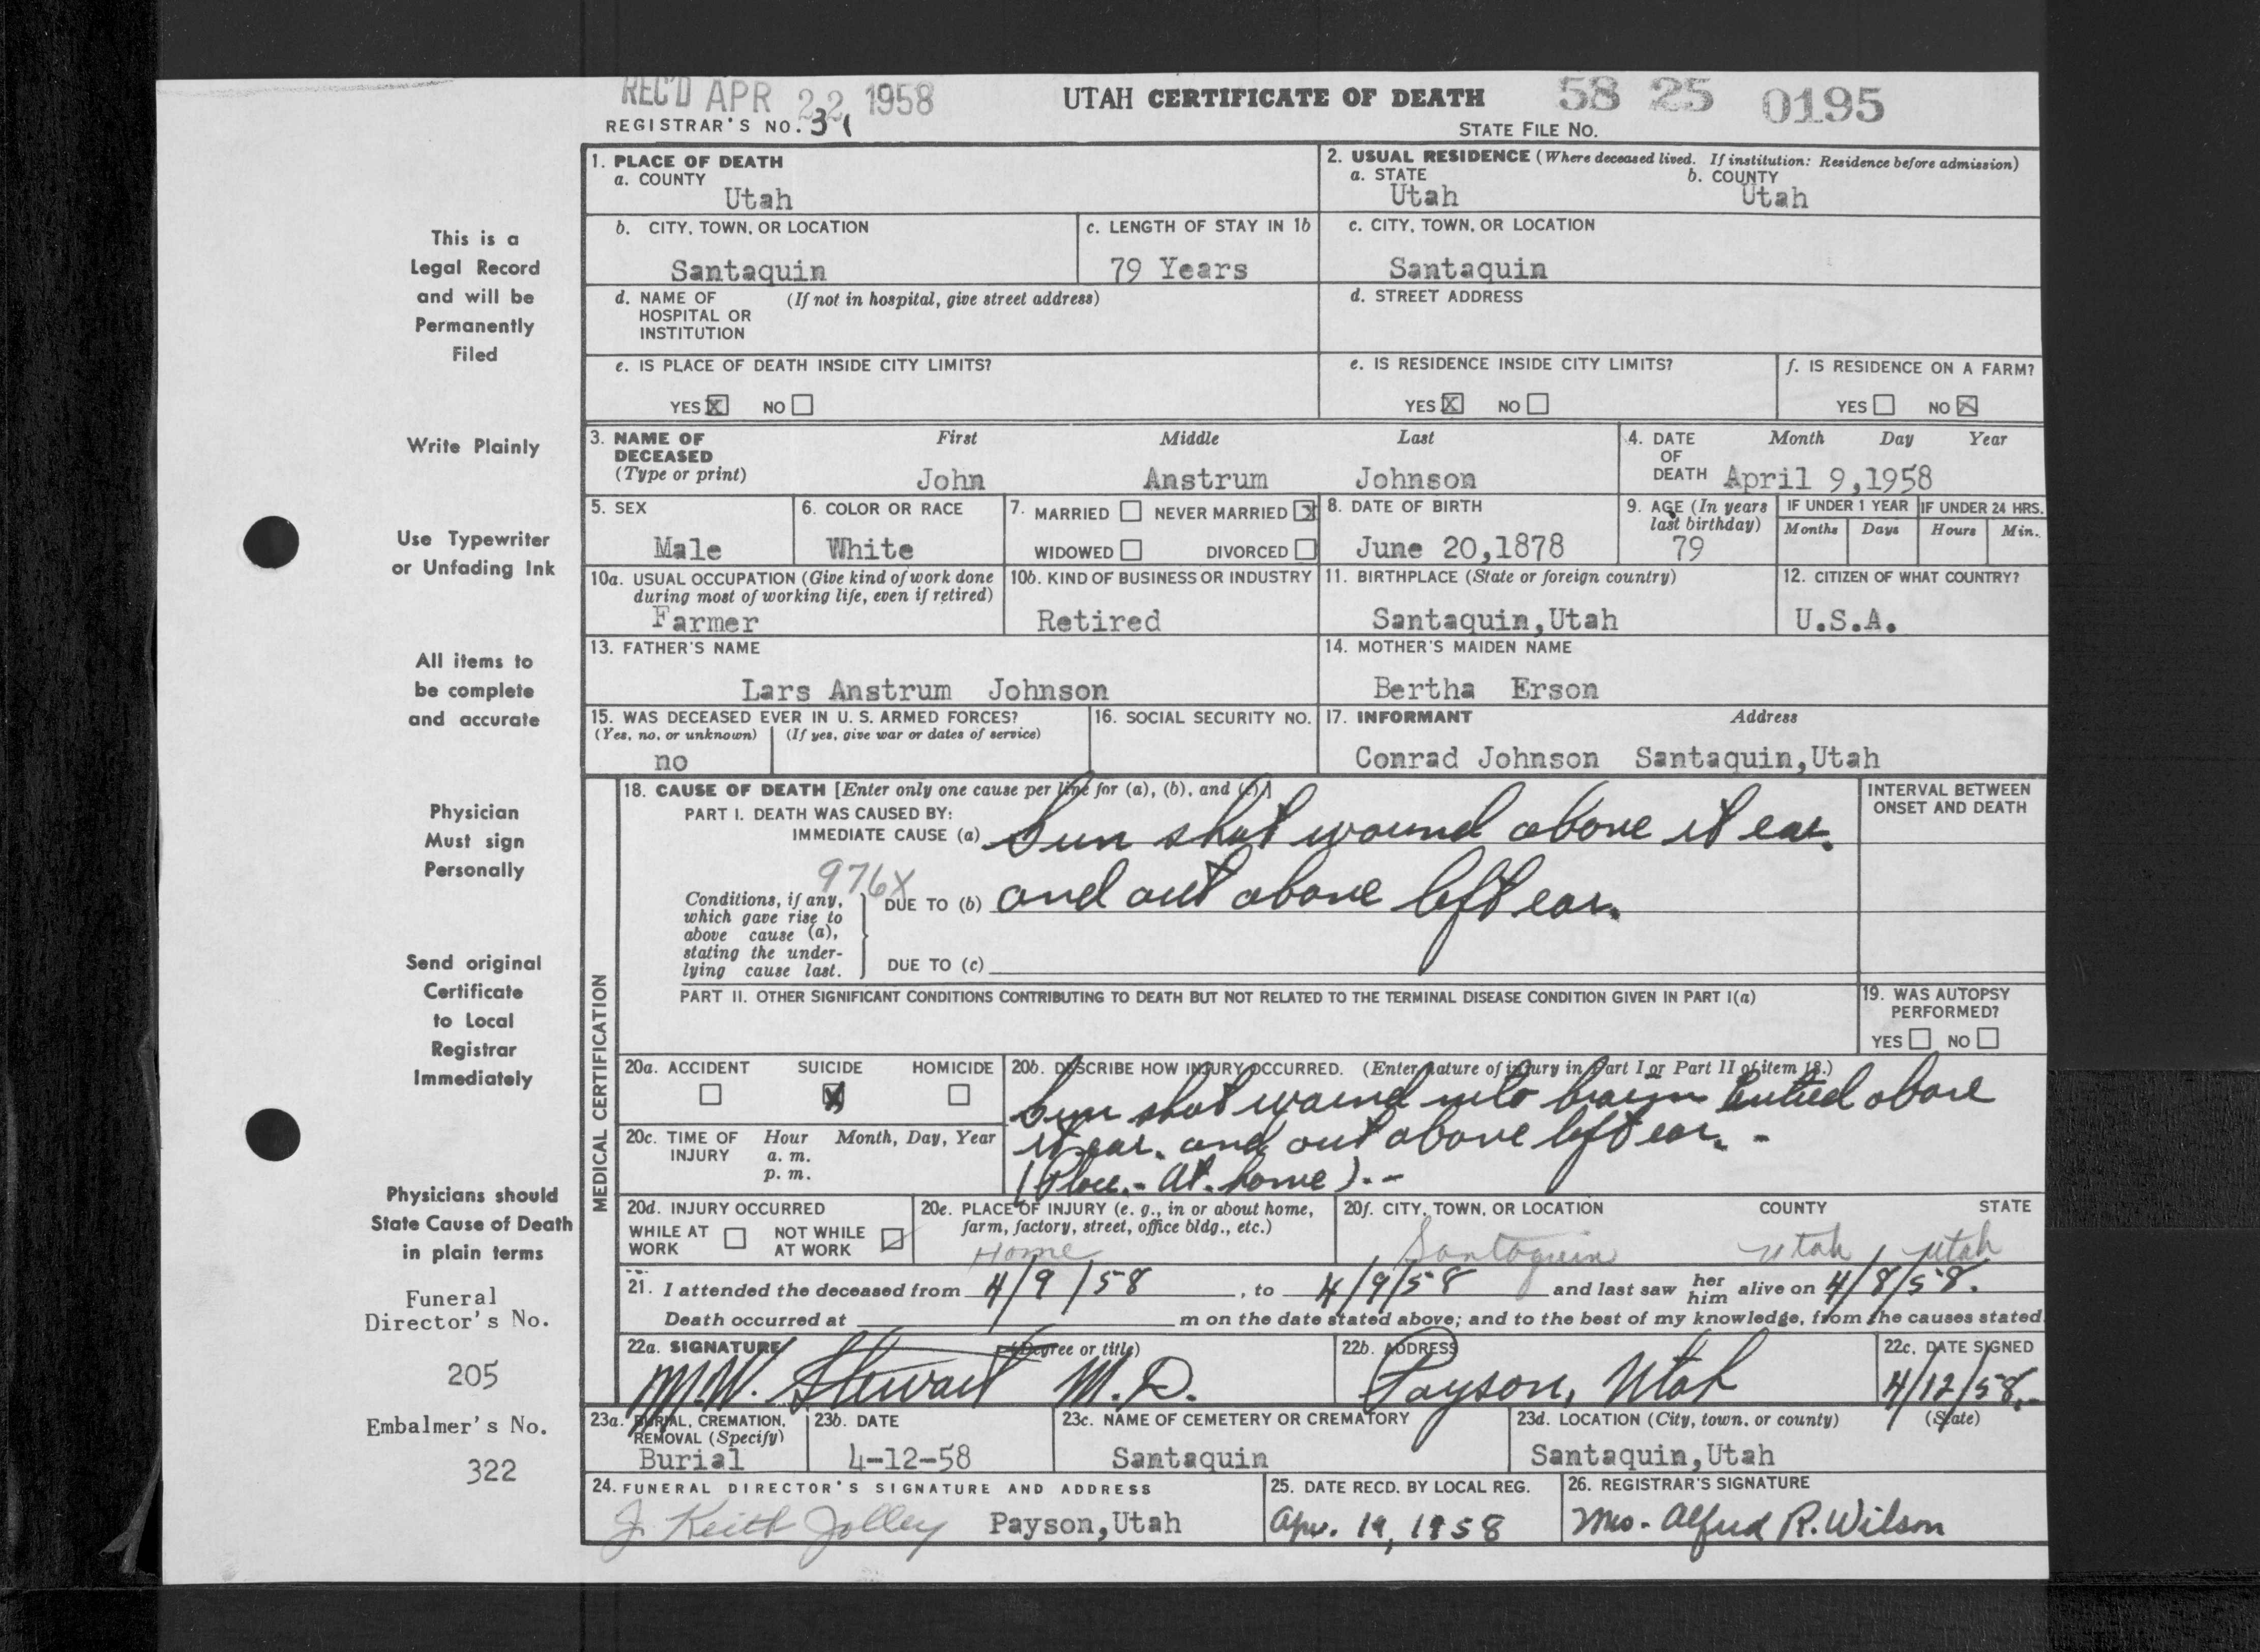 REC'D APR 22 1958
UTAH CERTIFICATE OF DEATH
58 25 0195
REGISTRAR'S NO. 31
STATE FILE NO.
1. PLACE OF DEATH
a. COUNTY
Utah
2. USUAL RESIDENCE (Where deceased lived. If institution: Residence before admission)
a. STATE b. COUNTY
Utah Utah
b. CITY, TOWN, OR LOCATION
Santaquin
c. LENGTH OF STAY IN 1b
79 Years
c. CITY, TOWN, OR LOCATION
Santaquin
d. NAME OF (If not in hospital, give street address)
HOSPITAL OR
INSTITUTION
d. STREET ADDRESS
e. IS PLACE OF DEATH INSIDE CITY LIMITS?
YES X NO
e. IS RESIDENCE INSIDE CITY LIMITS?
YES X NO
f. IS RESIDENCE ON A FARM?
YES NO X
3. NAME OF First Middle Last
DECEASED
(Type or print) John Anstrum Johnson
4. DATE Month Day Year
OF
DEATH April 9,1958
5. SEX
Male
6. COLOR OR RACE
White
7. MARRIED NEVER MARRIED X
WIDOWED DIVORCED
8. DATE OF BIRTH
June 20,1878
9. AGE (In years
last birthday)
79
IF UNDER 1 YEAR
Months Days
IF UNDER 24 HRS.
Hours Min.
10a. USUAL OCCUPATION (Give kind of work done
during most of working life, even if retired)
Farmer
10b. KIND OF BUSINESS OR INDUSTRY
Retired
11. BIRTHPLACE (State or foreign country)
Santaquin,Utah
12. CITIZEN OF WHAT COUNTRY?
U.S.A.
13. FATHER'S NAME
Lars Anstrum Johnson
14. MOTHER'S MAIDEN NAME
Bertha Erson
15. WAS DECEASED EVER IN U. S. ARMED FORCES?
(Yes, no, or unknown) (If yes, give war or dates of service)
no
16. SOCIAL SECURITY NO.
17. INFORMANT Address
Conrad Johnson Santaquin,Utah
MEDICAL CERTIFICATION
18. CAUSE OF DEATH [Enter only one cause per line for (a), (b), and (c).]
PART I. DEATH WAS CAUSED BY:
IMMEDIATE CAUSE (a) Gun shot wound above rt ear.
976X
Conditions, if any,
which gave rise to
above cause (a),
stating the under-
lying cause last.
DUE TO (b) and out above left ear.
DUE TO (c)
INTERVAL BETWEEN
ONSET AND DEATH
PART II. OTHER SIGNIFICANT CONDITIONS CONTRIBUTING TO DEATH BUT NOT RELATED TO THE TERMINAL DISEASE CONDITION GIVEN IN PART I(a)
19. WAS AUTOPSY
PERFORMED?
YES NO
20a. ACCIDENT SUICIDE HOMICIDE
X
20b. DESCRIBE HOW INJURY OCCURRED. (Enter nature of injury in Part I or Part II of item 18.)
Gun shot wound into brain Entred above
rt ear. and out above left ear. -
(Place. - At. home). -
20c. TIME OF Hour Month, Day, Year
INJURY a. m.
p. m.
20d. INJURY OCCURRED
WHILE AT WORK NOT WHILE AT WORK
20e. PLACE OF INJURY (e. g., in or about home,
farm, factory, street, office bldg., etc.)
Home
20f. CITY, TOWN, OR LOCATION COUNTY STATE
Santaquin Utah Utah
21. I attended the deceased from 4/9/58, to 4/9/58 and last saw her him alive on 4/8/58.
Death occurred at m on the date stated above; and to the best of my knowledge, from the causes stated.
22a. SIGNATURE (Degree or title)
M.W. Stewart M.D.
22b. ADDRESS
Payson, Utah
22c. DATE SIGNED
4/12/58.-
23a. BURIAL, CREMATION,
REMOVAL (Specify)
Burial
23b. DATE
4-12-58
23c. NAME OF CEMETERY OR CREMATORY
Santaquin
23d. LOCATION (City, town, or county) (State)
Santaquin,Utah
24. FUNERAL DIRECTOR'S SIGNATURE AND ADDRESS
J. Keith Jolley Payson,Utah
25. DATE RECD. BY LOCAL REG.
Apr. 19, 1958
26. REGISTRAR'S SIGNATURE
Mrs. Alfred R. Wilson
This is a
Legal Record
and will be
Permanently
Filed
Write Plainly
Use Typewriter
or Unfading Ink
All items to
be complete
and accurate
Physician
Must sign
Personally
Send original
Certificate
to Local
Registrar
Immediately
Physicians should
State Cause of Death
in plain terms
Funeral
Director's No.
205
Embalmer's No.
322